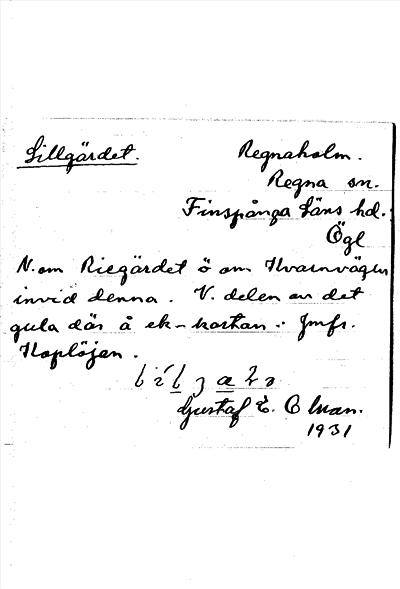 Lillgärdet.
Regnaholm.
Regna sn.
Finspånga läns hd.
Ögl
N. om Riegärdet ö om Kvarnvägen
invid denna. V. delen av det
gula där å ek-kartan. Jmfr.
Gustaf E. Olman.
1931